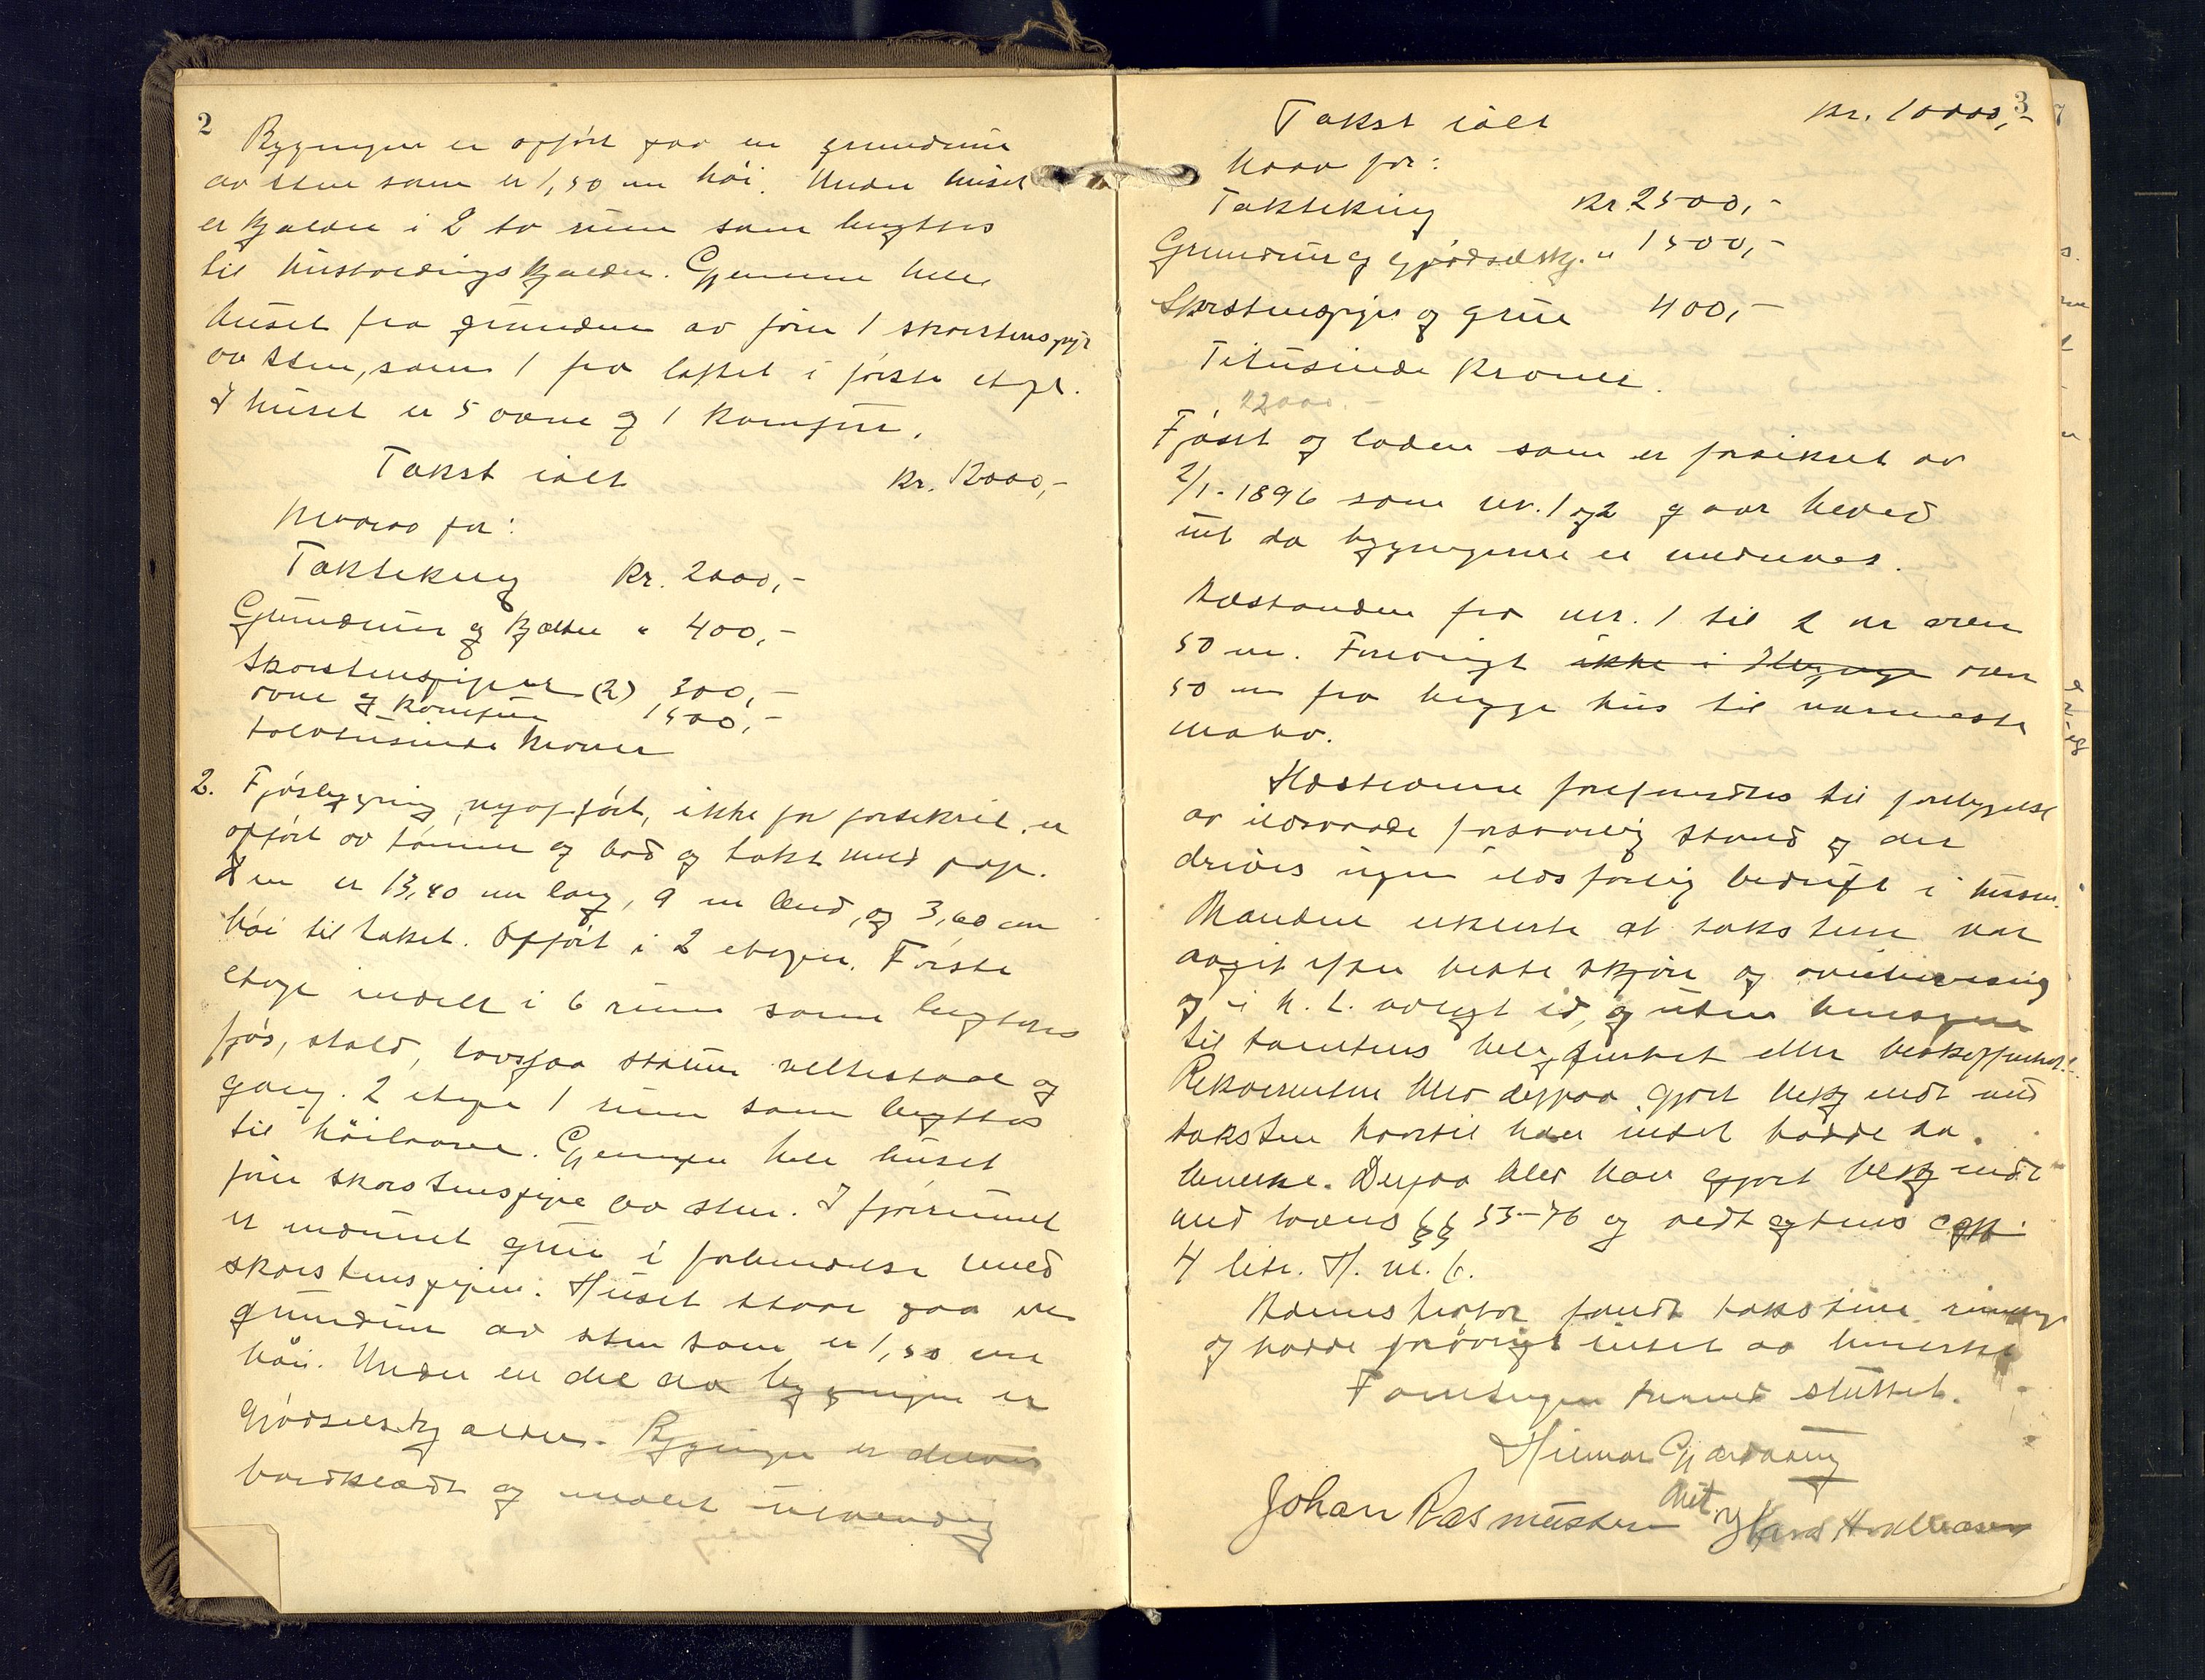 2
Bygningen er opført paa en grundmur
av sten som er 1,50 m høi. Under huset
er kjælder i 2 to rum som benyttes
til husholdningskjælder. Gjennem hele
huset fra grunden av fører 1 skorstenspipe
av sten, samt 1 fra loftet i første etage.
I huset er 5 ovne og 1 komfur.
Takst ialt kr. 12000,-
Hvorav for:
Taktekking kr. 2000,-
Grundmur og kjælder " 400,-
Skorstenspiper (2) 300,-
ovne og komfur 1500,-
tolvtusinde kroner
2. Fjøsbygning, nyopført, ikke før forsikret, er
opført av tømmer og bord og tækt med papp.
Den er 13,40 m lang, 9 m bred, og 3,60 m
høi til taket. Opført i 2 etager. Første
etage indelt i 6 rum som benyttes
fjøs, stald, sauefjøs og
gang. 2 etage 1 rum som benyttes
til høilaave. Gjennem hele huset
fører skorstenspipe av sten. I fjøsrummet
er indmuret grue i forbindelse med
skorstenspipen. Huset staar paa en
grundmur av sten som er 1,50 m
høi. Under en del av bygningen er
gjødselskjælder. Bygningen er delvis
bordklædt og malet utvendig
3
Takst ialt kr. 10000,-
Hvorav for:
Taktekking kr 2500,-
Grundmur og gjødselskj. " 1500,-
Skorstenspipe og grue 400,-
Titusinde kroner.
22000.-
Fjøset og laden som er forsikret av
2/1-1896 som nr. 1 og 2 gaar herved
ut da bygningerne er nedrevet.
Avstanden fra nr. 1 til 2 er over
50 m. Forøvrigt ikke i over
50 m fra begge hus til nærmeste
nabo.
Ildstederne forefandtes til forebyggelse
av ildsvaade forsvarlig stand og der
drives ingen ildsfarlig bedrift i husene.
Mændene erklærte at taksten var
avgit efter beste skjøn og overbevisning
og i h. t. avlagt ed, og uten hensyn
til tomtens beliggenhet eller beskaffenhet.
Rekvirenten blev derpaa gjort bekjendt med
taksten hvortil han intet hadde at
bemerke. Derpaa blev han gjort bekjendt
med lovens §§ 53-76 og vedtægtens kap.
4 litr. H. nr. 6.
Lensmanden fandt taksten rimelig
og hadde forøvrigt intet at bemerke
Forretningen dermed sluttet.
Hilmar
Johan Rasmussen